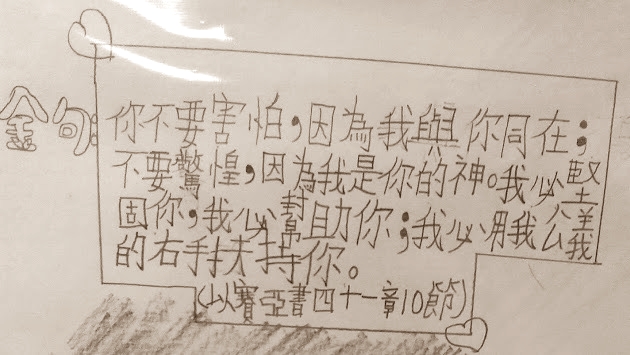 金句:
你不要害怕,因為我與你同在;
不要驚惶,因為我是你的神。我必堅
固你,我必幫助你;我必用我公義
的右手扶持你。
(以賽亞書四十一章10節)